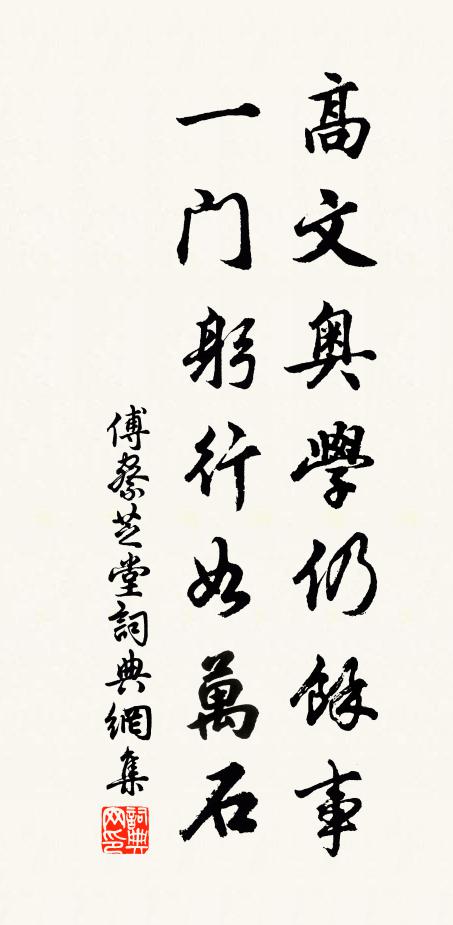 高文奥學仍餘事
一门躬行如萬石
傅蔡芝堂詞典網集
詞典网印